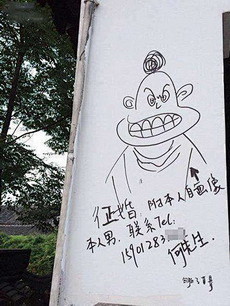 征婚 附本人自画像
本人男. 联系Tel:
1501283
何先生.